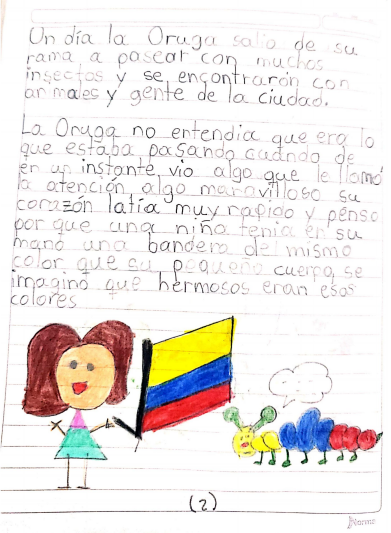 Un día la Oruga salio de su
rama a pasear con muchos
insectos y se encontrarón con
animales y gente de la ciudad.
La Oruga no entendia que era lo
que estaba pasando cuando de
en un instante vio algo que le llamó
la atención algo maravilloso su
corazón latía muy rapido y penso
por que una niña tenia en su
mano una bandera del mismo
color que su pequeño cuerpo, se
imagino que hermosos eran esos
colores
(2)
Norma